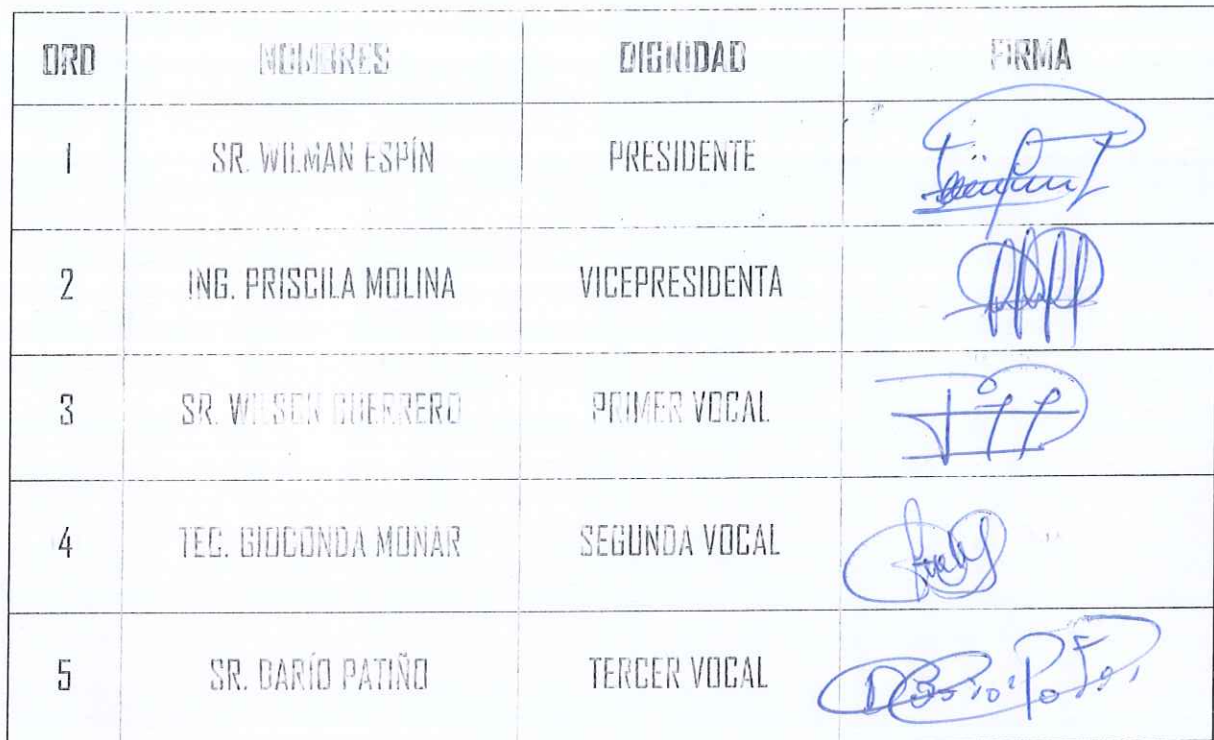 ORD NOMBRES DIGNIDAD FIRMA
1 SR. WILMAN ESPÍN PRESIDENTE
2 ING. PRISCILA MOLINA VICEPRESIDENTA
3 SR. WILSON GUERRERO PRIMER VOCAL
4 TEC. GIOCONDA MONAR SEGUNDA VOCAL
5 SR. DARÍO PATIÑO TERCER VOCAL